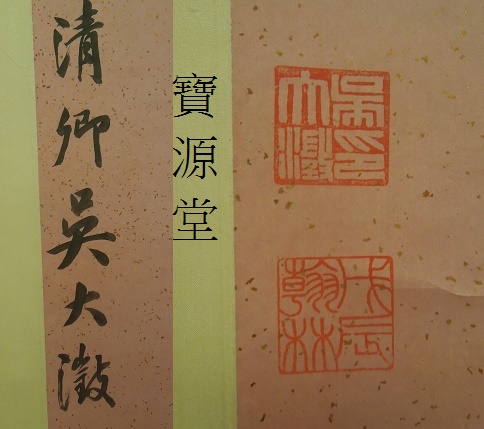 清卿吳大澂
寶源堂
吳大澂印
戊辰翰林